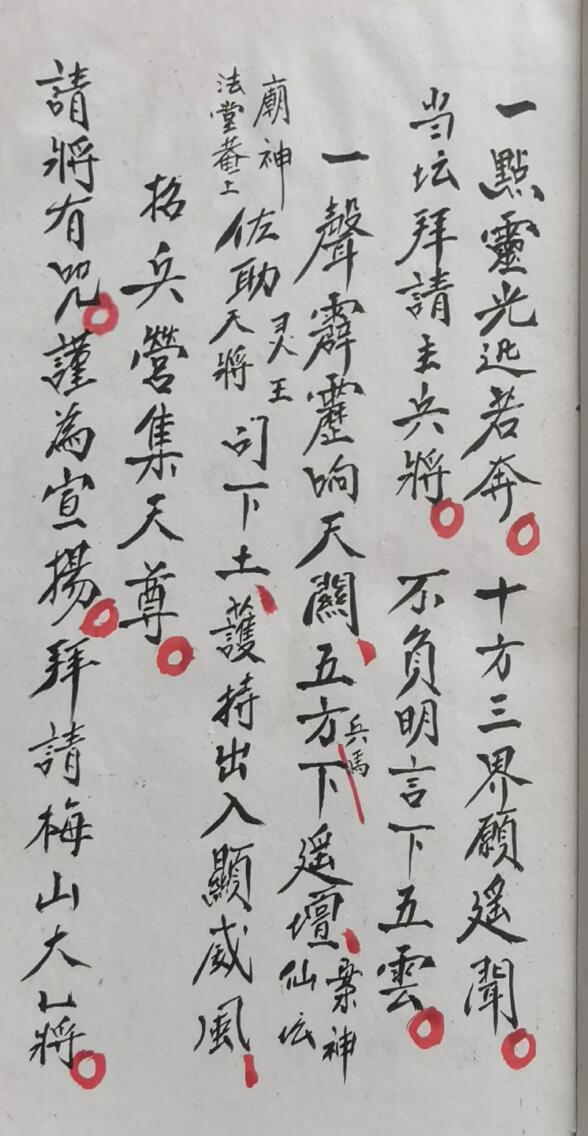 一點靈光迅若奔十方三界願遥聞
当坛拜請主兵將不負明言下五雲
一聲霹靂响天關五方兵馬下遥壇案神仙坛
廟神法堂菴上佐助灵王天將问下土護持出入顯威風
招兵營集天尊
請將有咒謹為宣揚拜請梅山大乚將